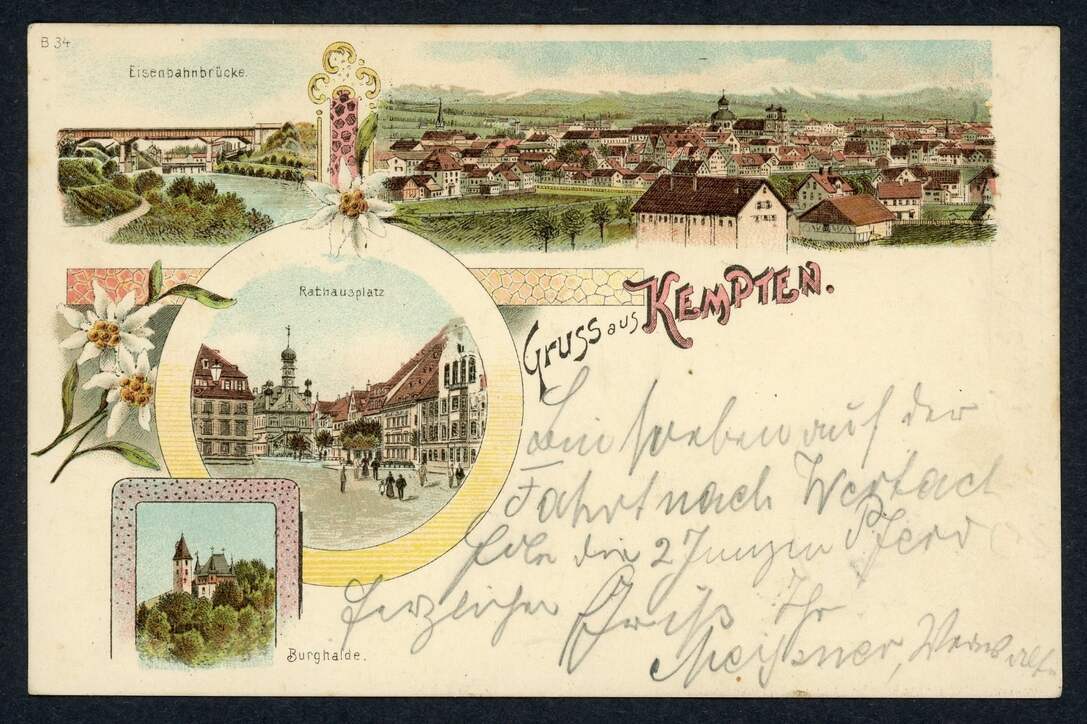 B 34.
Eisenbahnbrücke.
Rathausplatz
Gruss aus KEMPTEN.
Bin soeben auf der
Fahrt nach Wertach
hole die 2 Jungen Pferd
Herzlichen Gruß Ihr
Meißner,
Burghalde.